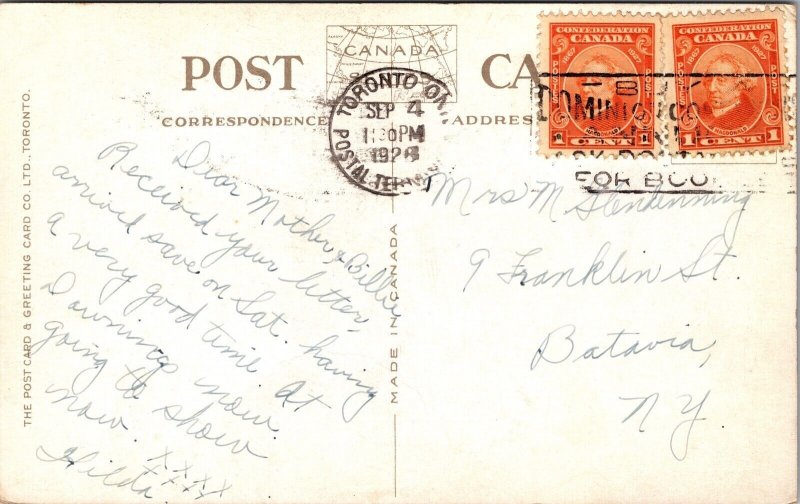 POST CA
CANADA
CORRESPONDENCE
ADDRESS
TORONTO ONT.
SEP 4
1:30PM
192
POSTAL TERM
DOMINIO
FOR BOO
CONFEDERATION
CANADA
1867 1927
POSTES POSTAGE
MACDONALD
CENT
CONFEDERATION
CANADA
1867 1927
MACDONALD
1 CENT 1
Dear Mother & Billie
Received your letter,
arrived save on Sat. having
a very good time at
Downings now.
going to show
now. xxxx
Hilda xxxx
Mrs M Glendinning
9 Franklin St.
Batavia,
N Y.
MADE IN CANADA
THE POST CARD & GREETING CARD CO. LTD., TORONTO.